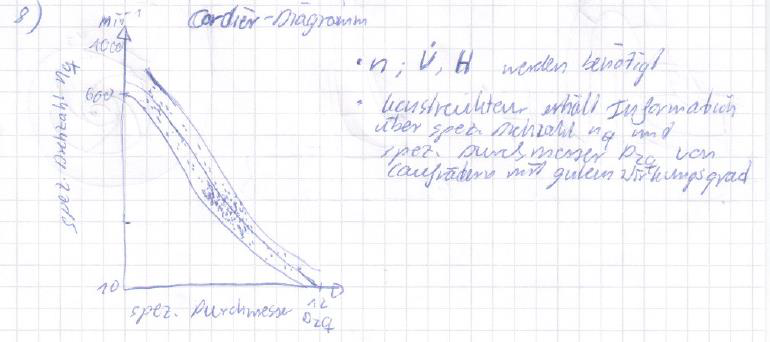 8)
Cordier-Diagramm
min⁻¹
1000
600
10
spez Drehzahl nq
spez. Durchmesser
12
D2q
• n ; V̇, H werden benötigt
• Konstrukteur erhält Information
über spez. Drehzahl nq und
spez. Durchmesser D2q von
Laufrädern mit gutem Wirkungsgrad